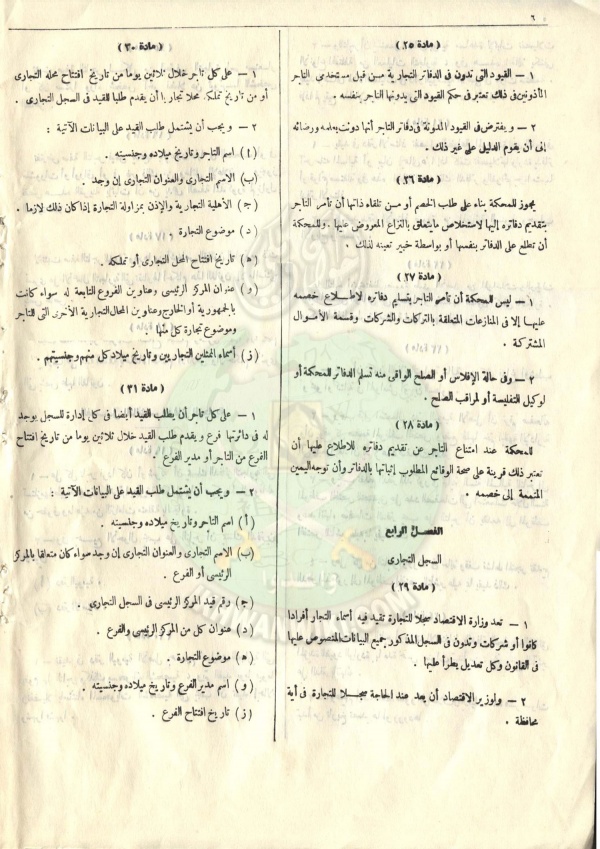 ٦
( مادة ٢٥ )
١ – القيود التى تدون فى الدفاتر التجارية من قبل مستخدمى التاجر
المأذونين فى ذلك تعتبر فى حكم القيود التى يدونها التاجر بنفسه .
٢ – ويفترض فى القيود المدونة فى دفاتر التاجر أنها دونت بعلمه ورضائه
إلى أن يقوم الدليل على غير ذلك .
( مادة ٢٦ )
يجوز للمحكمة بناء على طلب الخصم أو من تلقاء ذاتها أن تأمر التاجر
بتقديم دفاتره إليها لاستخلاص ما يتعلق بالنزاع المعروض عليها . وللمحكمة
أن تطلع على الدفاتر بنفسها أو بواسطة خبير تعينه لذلك .
( مادة ٢٧ )
١ – ليس للمحكمة أن تأمر التاجر بتسليم دفاتره لاطلاع خصمه
عليها إلا فى المنازعات المتعلقة بالتركات والشركات وقسمة الأموال
المشتركة .
٢ – وفى حالة الإفلاس أو الصلح الواقى منه تسلم الدفاتر للمحكمة أو
لوكيل التفليسة أو لمراقب الصلح .
( مادة ٢٨ )
للمحكمة عند امتناع التاجر عن تقديم دفاتره للاطلاع عليها أن
تعتبر ذلك قرينة على صحة الوقائع المطلوب إثباتها بالدفاتر وأن توجه اليمين
المتممة إلى خصمه .
الفصل الرابع
السجل التجارى
( مادة ٢٩ )
١ – تعد وزارة الاقتصاد سجلا للتجارة تقيد فيه أسماء التجار أفرادا
كانوا أو شركات وتدون فى السجل المذكور جميع البيانات المنصوص عليها
فى القانون وكل تعديل يطرأ عليها .
٢ – ولوزير الاقتصاد أن يعد عند الحاجة سجلا للتجارة فى أية
محافظة .
( مادة ٣٠ )
١ – على كل تاجر خلال ثلاثين يوما من تاريخ افتتاح محله التجارى
أو من تاريخ تملكه محلا تجاريا أن يقدم طلبا للقيد فى السجل التجارى .
٢ – ويجب أن يشتمل طلب القيد على البيانات الآتية :
( أ ) اسم التاجر وتاريخ ميلاده وجنسيته .
(ب) الاسم التجارى والعنوان التجارى إن وجد .
(ج) الأهلية التجارية والإذن بمزاولة التجارة إذا كان ذلك لازما .
( د ) موضوع التجارة .
( ه ) تاريخ افتتاح المحل التجارى أو تملكه .
( و ) عنوان المركز الرئيسى وعناوين الفروع التابعة له سواء كانت
بالجمهورية أو الخارج وعناوين المحال التجارية الأخرى التى للتاجر
وموضوع تجارة كل منها .
( ز ) أسماء الممثلين التجاريين وتاريخ ميلاد كل منهم وجنسيتهم .
( مادة ٣١ )
١ – على كل تاجر أن يطلب القيد أيضا فى كل إدارة للسجل يوجد
له فى دائرتها فرع ويقدم طلب القيد خلال ثلاثين يوما من تاريخ افتتاح
الفرع من التاجر أو مدير الفرع .
٢ – ويجب أن يشتمل طلب القيد على البيانات الآتية :
( أ ) اسم التاجر وتاريخ ميلاده وجنسيته .
(ب) الاسم التجارى والعنوان التجارى إن وجد سواء كان متعلقا بالمركز
الرئيسى أو الفرع .
(ج) رقم قيد المركز الرئيسى فى السجل التجارى .
( د ) عنوان كل من المركز الرئيسى والفرع .
( ه ) موضوع التجارة .
( و ) اسم مدير الفرع وتاريخ ميلاده وجنسيته .
( ز ) تاريخ افتتاح الفرع .